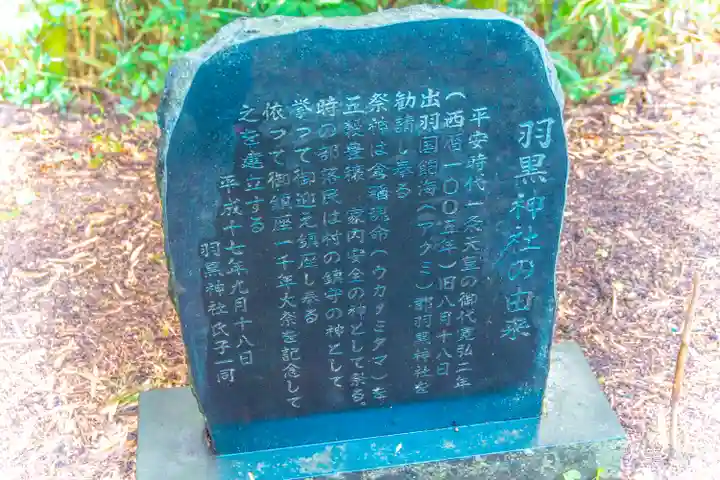 羽黒神社の由来
平安時代一条天皇の御代寛弘二年
(西暦一〇〇五年)旧八月十八日
出羽国飽海(アクミ)郡羽黒神社を
勧請し奉る
祭神は倉稲魂命(ウカノミタマ)を
五穀豊穣 家内安全の神として祭る。
時の部落民は村の鎮守の神として
挙って御迎え鎮座し奉る
依って御鎮座一千年大祭を記念して
之を建立する
平成十七年九月十八日
羽黒神社氏子一同